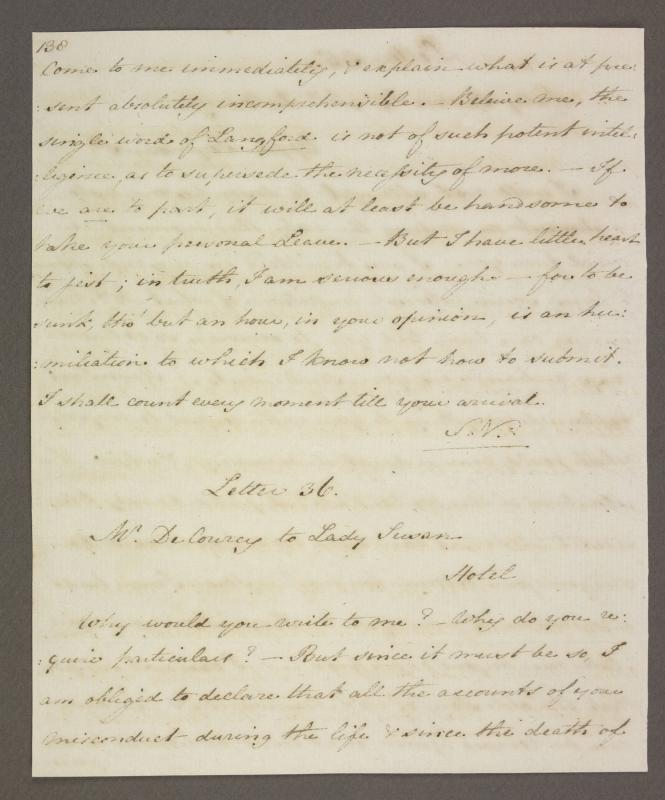 138
Come to me immediately, & explain what is at pre:
:sent absolutely incomprehensible. – Beleive me, the
single word of Langford is not of such potent intel:
:ligence, as to supersede the necessity of more. – If
we are to part, it will at least be handsome to
take your personal Leave. – But I have little heart
to jest; in truth, I am serious enough – for to be
sunk, tho' but an hour, in your opinion, is an hu:
:miliation to which I know not how to submit.
I shall count every moment till your arrival.
S.V.
Letter 36.
Mr. De Courcy to Lady Susan
Hotel
Why would you write to me? – Why do you re:
:quire particulars? – But since it must be so, I
am obliged to declare that all the accounts of your
misconduct during the life & since the death of